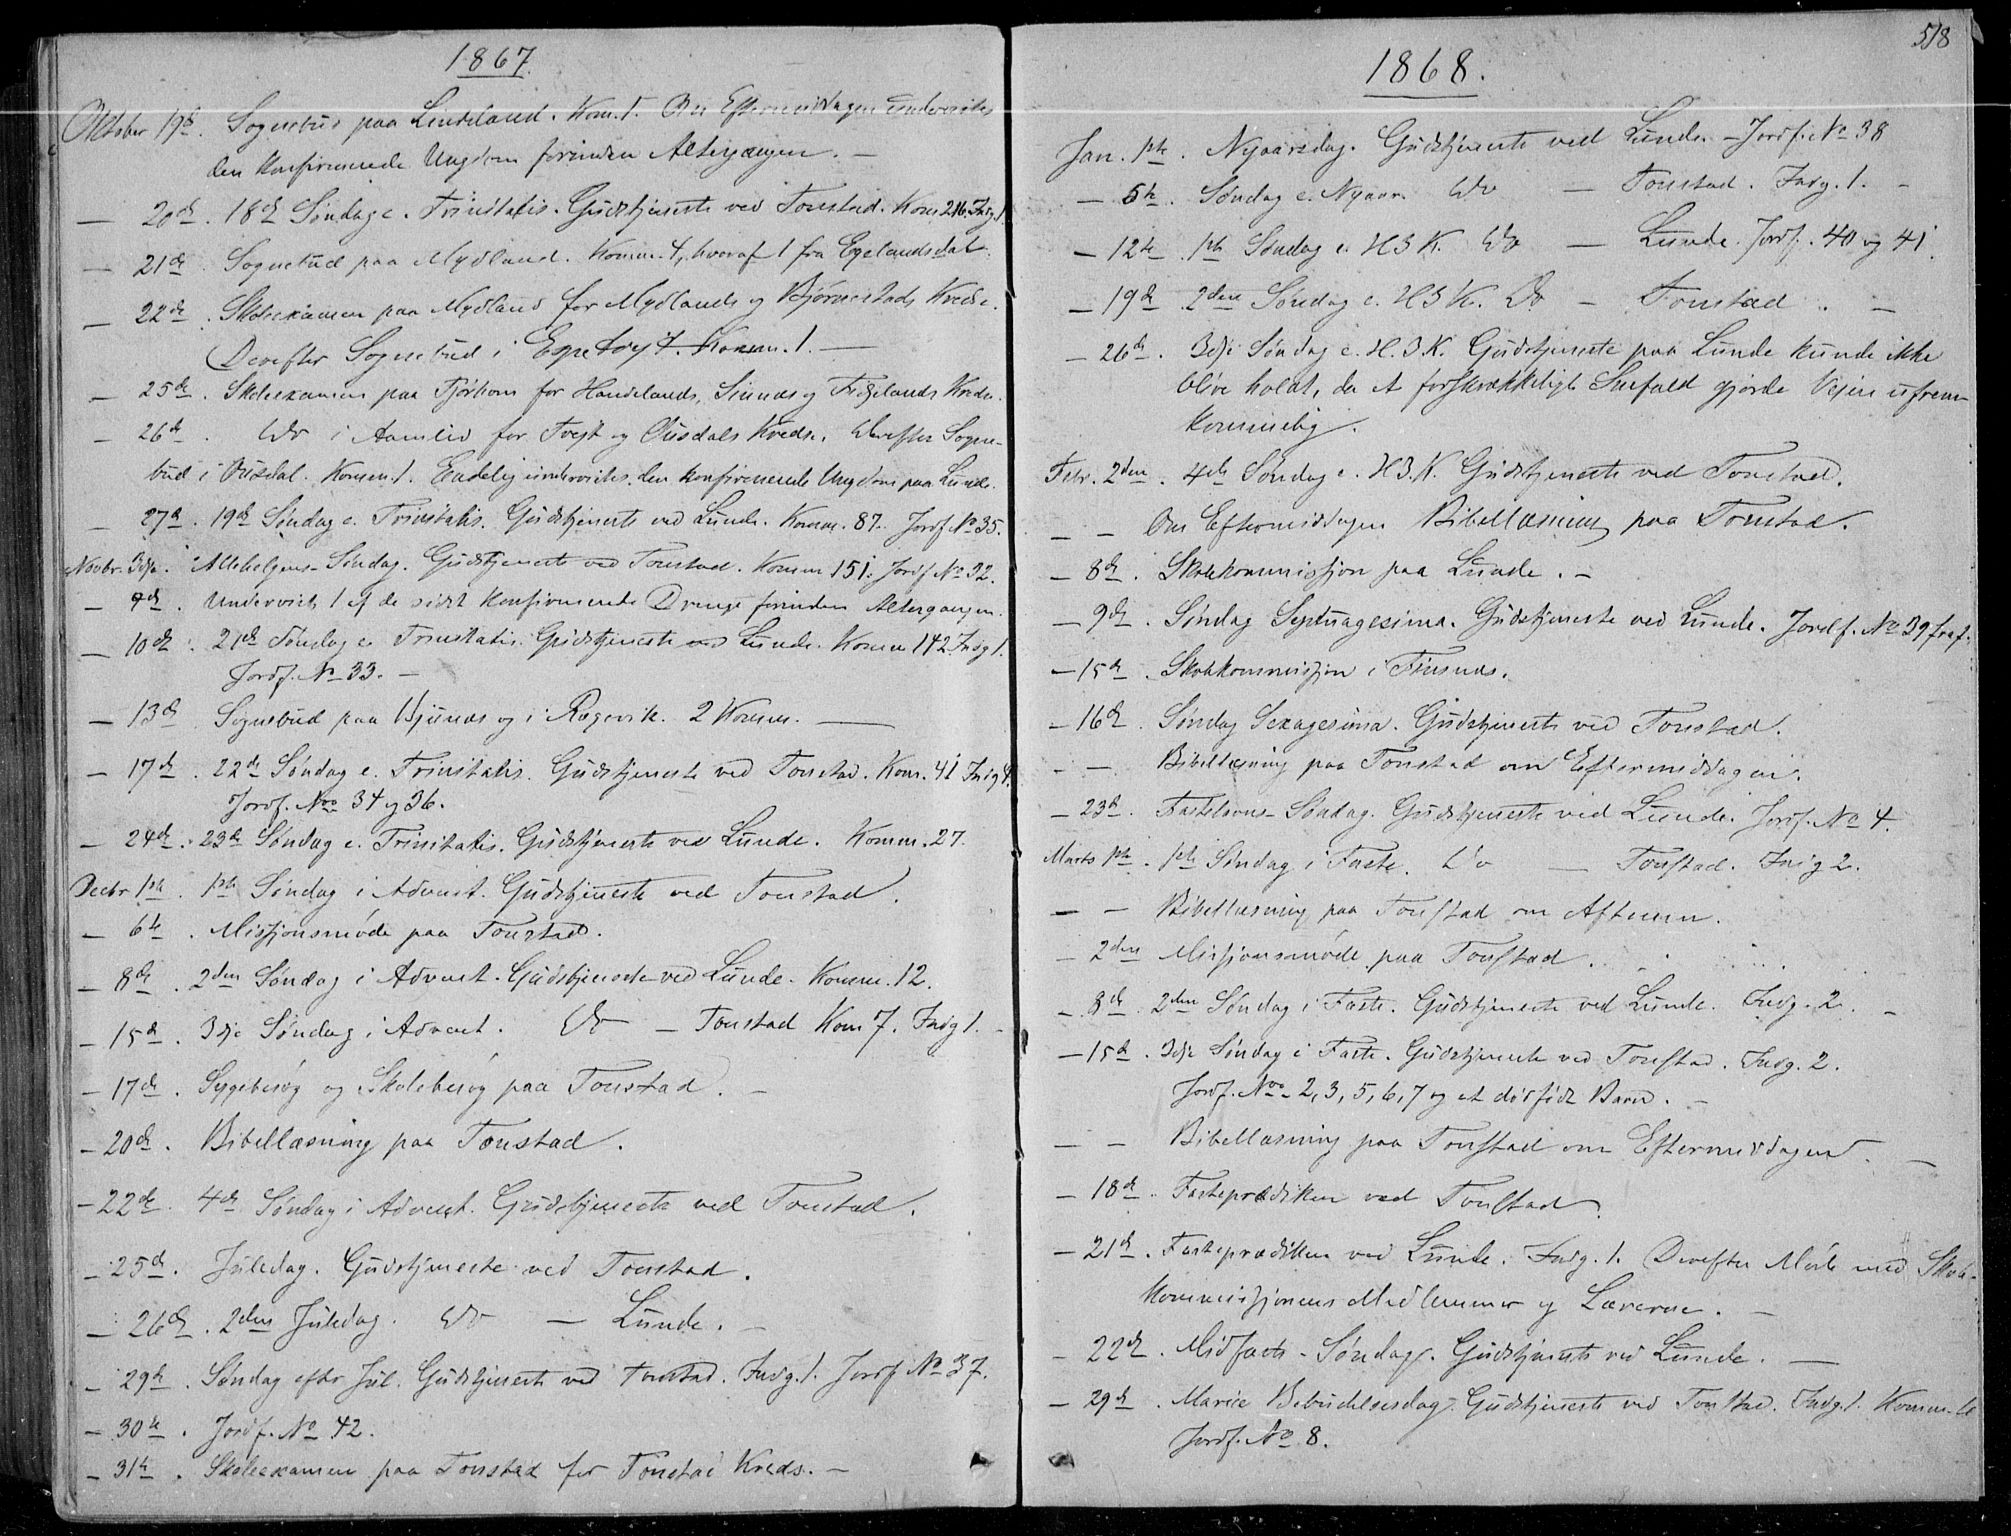 1867.
Oktober 19de. Sognebud paa Lindeland. Kom. 1. Om Eftermiddagen undervistes
den konfirmerede Ungdom forinden Altergangen. —
— 20de. 18de Søndag e. Trinitatis. Gudstjeneste ved Tonstad. Kom. 216. Indg. 1.
— 21de. Sognebud paa Mydland. Komm. 4, hvoraf 1 fra Egelandsdal.
— 22de. Skoleexamen paa Mydland for Mydlands og Bjørnestads Kreds.
Derefter Sognebud i Komm. 1. —
— 25de. Skoleexamen paa Fjotland for Haudelands, Sinnes og Fidjelands Kreds.
— 26de. Do i Aamlid for Tvejt og Ousdals Kreds. Derefter Sogne-
bud i Ousdal. Komm. 1. Endelig undervistes den konfirmerede Ungdom paa Lunde.
— 27de. 19de Søndag e. Trinitatis. Gudstjeneste ved Lunde. Komm. 87. Jordf. No 35.
Novbr. 3dje. Allehelgens-Søndag. Gudstjeneste ved Tonstad. Komm 151. Jordf No 32.
— 9de. Undervist 1 af de sidst konfirmerede Drenge forinden Altergangen.
— 10de. 21de Søndag e. Trinitatis. Gudstjeneste ved Lunde. Komm 142. Indg 1.
Jordf. No 33. —
— 13de Sognebud paa Hjunes og i Rægevik. 2 Komm. —
— 17de. 22de Søndag e. Trinitatis. Gudstjeneste ved Tonstad. Kom. 41 Indg 4.
Jordf. Nro 34 og 36.
— 24de. 23de Søndag e. Trinitatis. Gudstjeneste ved Lunde. Komm. 27.
Decbr 1ste. 1ste Søndag i Advent. Gudstjeneste ved Tonstad.
— 6te. Missjonsmøde paa Tonstad.
— 8de. 2den Søndag i Advent. Gudstjeneste ved Lunde. Komm. 12.
— 15de. 3dje Søndag i Advent. Do — Tonstad Kom 7. Indg 1. —
— 17de. Sygebesøg og Skolebesøg paa Tonstad. —
— 20de. Bibellæsning paa Tonstad.
— 22de. 4de Søndag i Advent. Gudstjeneste ved Tonstad.
— 25de. Juledag. Gudstjeneste ved Tonstad.
— 26de. 2den Juledag. Do — Lunde. —
— 29de. Søndag efter Jul. Gudstjeneste ved Tonstad. Indg. 1. Jordf No 37.
— 30te. Jordf. No 42.
— 31te. Skoleexamen paa Tonstad for Tonstad Kreds. —
518
1868.
Jan. 1ste. Nyaarsdag. Gudstjeneste ved Lunde. — Jordf. No 38
— 5te. Søndag e. Nyaar. Do — Tonstad. Indg. 1. —
— 12te. 1ste Søndag e. H3K. Do — Lunde. Jordf. 40 og 41.
— 19de 2den Søndag e. H3K. Do — Tonstad. —
— 26de. 3dje Søndag e. H.3.K. Gudstjeneste paa Lunde kunde ikke
blive holdt, da et forskrækkeligt Snefald gjorde Vejen ufrem-
kommelig.
Febr. 2den. 4de Søndag e. H3.K. Gudstjeneste ved Tonstad.
— — Om Eftermiddagen Bibellæsning paa Tonstad.
— 8de. Skolekommissjon paa Lunde. —
— 9de. Søndag Septuagesima. Gudstjeneste ved Lunde. Jordf. No 39 fra f.
— 15de. Skolekommissjon i Finsnes.
— 16de. Søndag Sexagesima. Gudstjeneste ved Tonstad.
— — Bibellæsning paa Tonstad om Eftermiddagen.
— 23de. Fastelavns-Søndag. Gudstjeneste ved Lunde. Jordf. No 4.
Marts 1ste. 1ste Søndag i Faste. Do — Tonstad. Indg 2.
— — Bibellæsning paa Tonstad om Aftenen.
— 2den Missjonsmøde paa Tonstad.
— 8de. 2den Søndag i Faste. Gudstjeneste ved Lunde. Indg. 2. —
— 15de. 3dje Søndag i Faste. Gudstjeneste ved Tonstad. Indg. 2.
Jordf. Nro 2, 3, 5, 6, 7 og et dødfødt Barn. —
— — Bibellæsning paa Tonstad om Eftermiddagen. —
— 18de. Fasteprædiken ved Tonstad.
— 21de. Fasteprædiken ved Lunde. Indg. 1. Derefter Møde med Skole-
kommissjonens Medlemmer og Lærerne. —
— 22de. Midfaste-Søndag. Gudstjeneste ved Lunde. —
— 29de. Mariæ Bebudelsesdag. Gudstjeneste ved Tonstad. Indg. 1. Komm.
Jordf. No 8.